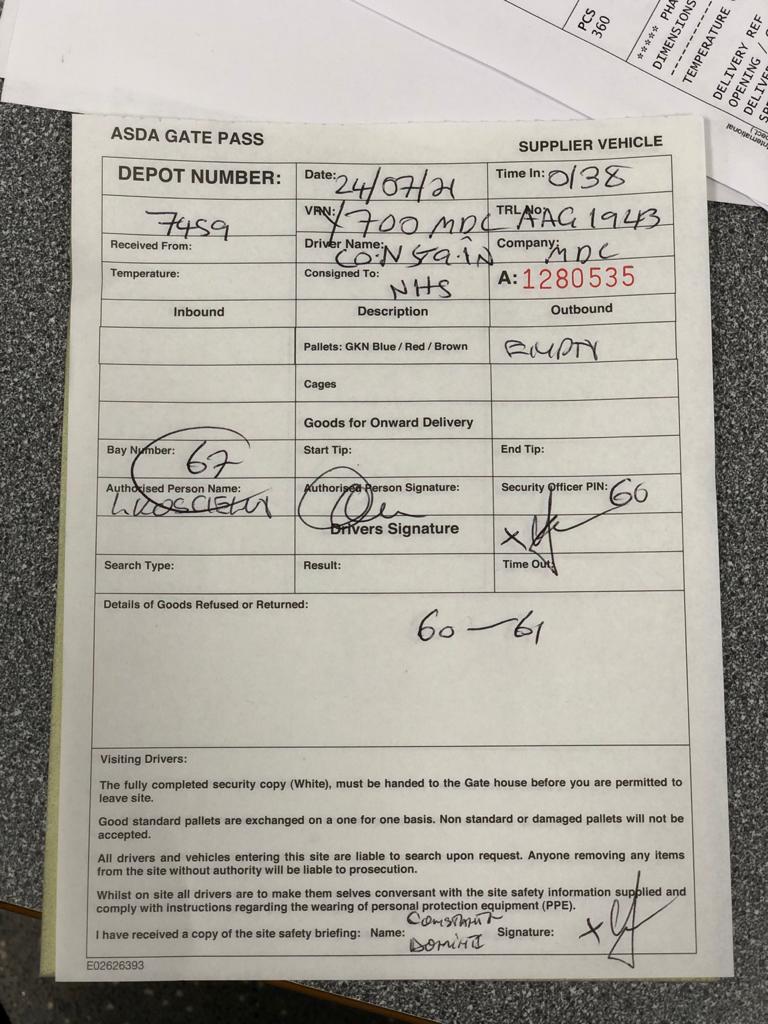 PCS
360
***** PHA
DIMENSIONS
TEMPERATURE
DELIVERY REF
OPENING /
DELIVE
SP
ASDA GATE PASS
SUPPLIER VEHICLE
DEPOT NUMBER:
Date: 24/07/21
Time In: 0138
7459
VRN: Y700 MDC
TRL No: AAG1943
Received From:
Driver Name:
Company: MDC
Temperature:
Consigned To: NHS
A: 1280535
Inbound
Description
Outbound
Pallets: GKN Blue / Red / Brown
EMPTY
Cages
Goods for Onward Delivery
Bay Number: 67
Start Tip:
End Tip:
Authorised Person Name:
Authorised Person Signature:
Security Officer PIN: 60
Drivers Signature
x
Search Type:
Result:
Time Out:
Details of Goods Refused or Returned:
60 - 61
Visiting Drivers:
The fully completed security copy (White), must be handed to the Gate house before you are permitted to
leave site.
Good standard pallets are exchanged on a one for one basis. Non standard or damaged pallets will not be
accepted.
All drivers and vehicles entering this site are liable to search upon request. Anyone removing any items
from the site without authority will be liable to prosecution.
Whilst on site all drivers are to make them selves conversant with the site safety information supplied and
comply with instructions regarding the wearing of personal protection equipment (PPE).
I have received a copy of the site safety briefing: Name: Signature: x
E02626393